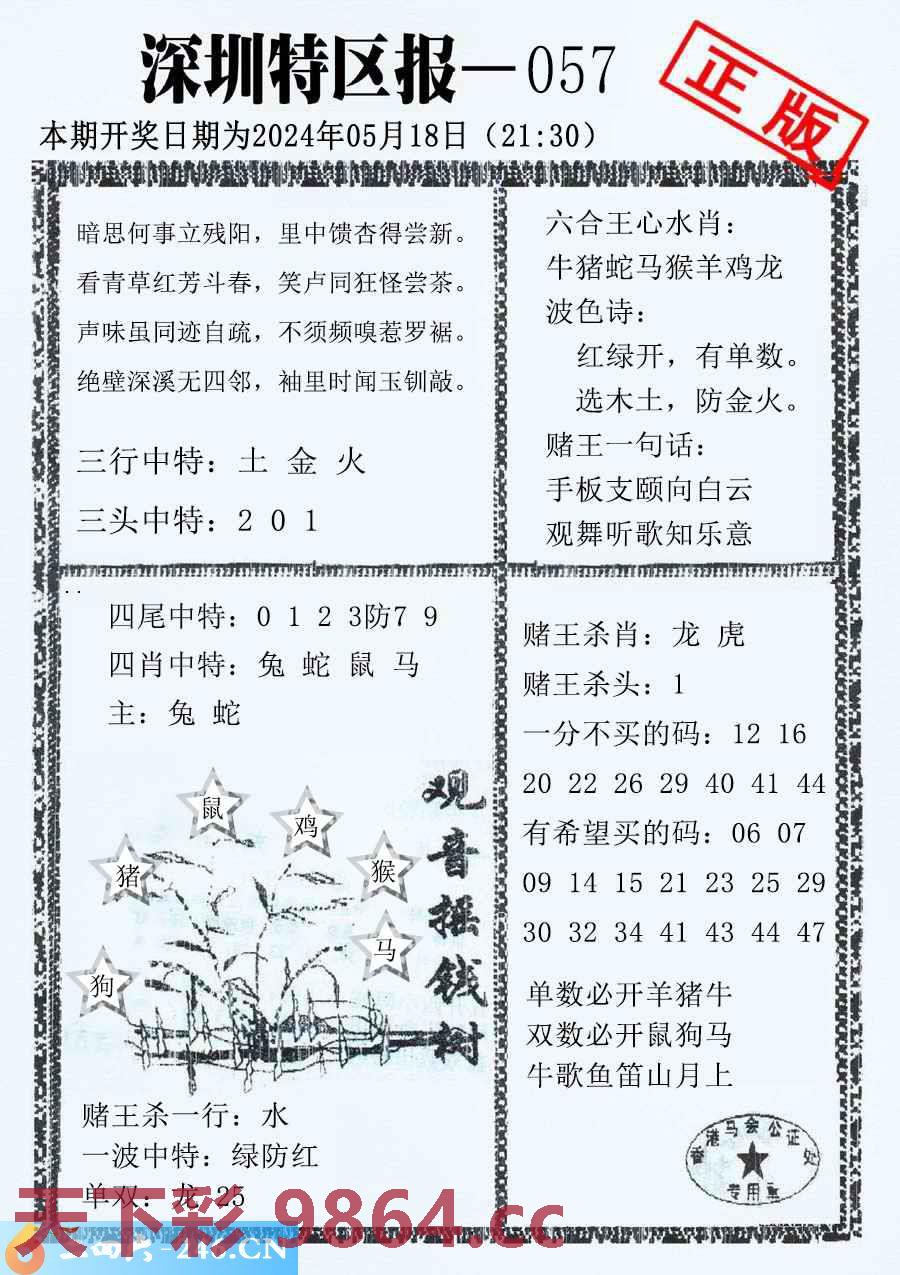 深圳特区报—057
正版
本期开奖日期为2024年05月18日（21:30）
暗思何事立残阳，里中馈杏得尝新。
看青草红芳斗春，笑卢同狂怪尝茶。
声味虽同迹自疏，不须频嗅惹罗裾。
绝壁深溪无四邻，袖里时闻玉钏敲。
三行中特：土 金 火
三头中特：2 0 1
六合王心水肖：
牛猪蛇马猴羊鸡龙
波色诗：
红绿开，有单数。
选木土，防金火。
赌王一句话：
手板支颐向白云
观舞听歌知乐意
四尾中特：0 1 2 3防7 9
四肖中特：兔 蛇 鼠 马
主：兔 蛇
鼠
鸡
猪
猴
马
狗
观音摇钱树
赌王杀一行：水
一波中特：绿防红
单双：龙 25
赌王杀肖：龙 虎
赌王杀头：1
一分不买的码：12 16
20 22 26 29 40 41 44
有希望买的码：06 07
09 14 15 21 23 25 29
30 32 34 41 43 44 47
单数必开羊猪牛
双数必开鼠狗马
牛歌鱼笛山月上
香港马会公证处
专用章
天下彩 9864.cc
246.CN